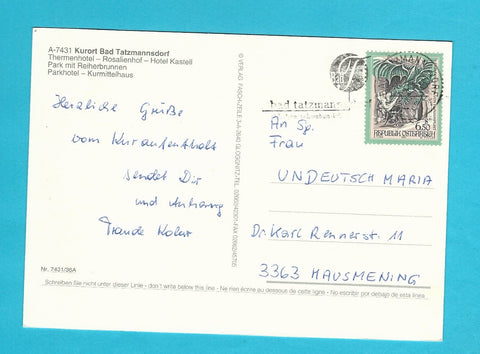 A-7431 Kurort Bad Tatzmannsdorf
Thermenhotel – Rosalienhof – Hotel Kastell
Park mit Reiherbrunnen
Parkhotel – Kurmittelhaus
Herzliche Grüße
vom Kuraufenthalt
sendet Dir
und Anhang
Traude
Nr. 7431/36A
© VERLAG
bad tatzmanns
6.50
REPUBLIK ÖSTERREICH
An Sp.
Frau
UNDEUTSCH MARIA
Dr. Karl Rennerstr. 11
3363 HAUSMENING
Schreiben Sie nicht unter dieser Linie - don't write below this line - Ne rien écrire au dessous de cette ligne - No escribir por debajo de esta línea